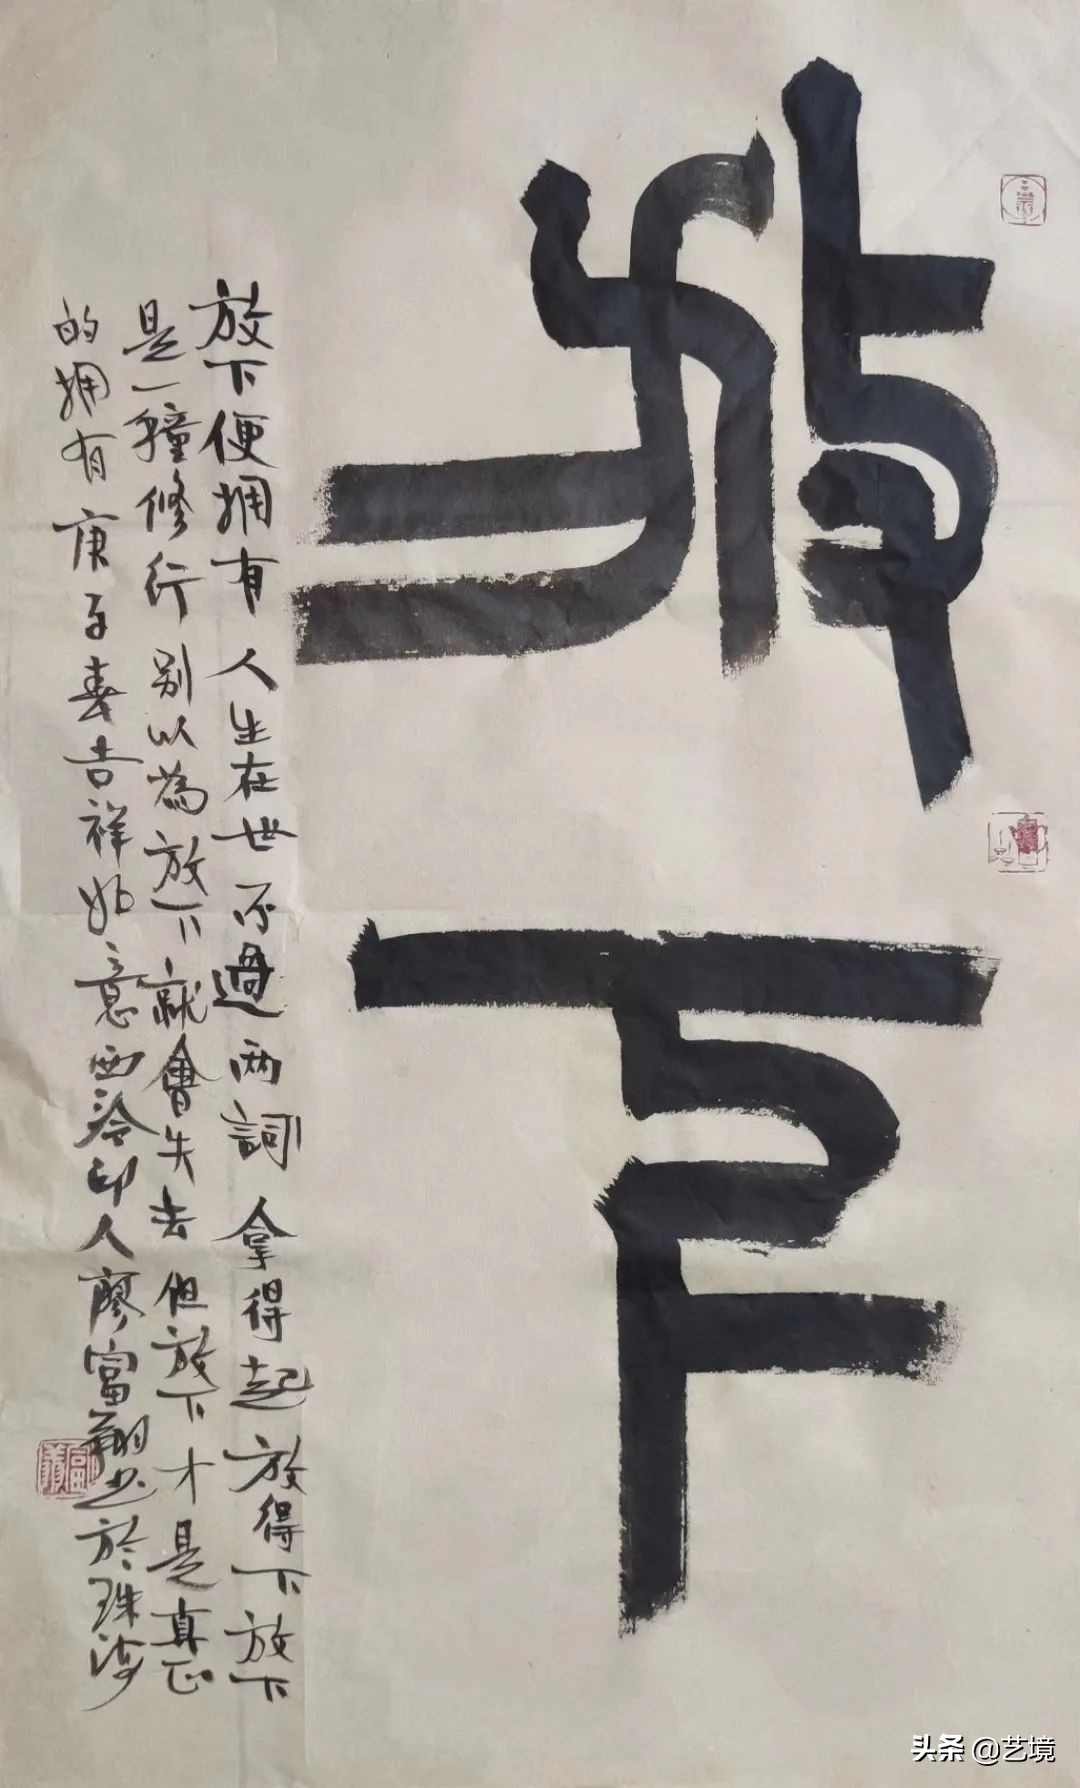 放下
放下便拥有人生在世不過两詞拿得起放得下放下
是一種修行别以為放下就會失去但放下才是真正
的拥有庚子春吉祥如意西泠印人廖富翔书於珠海
头条 @艺境